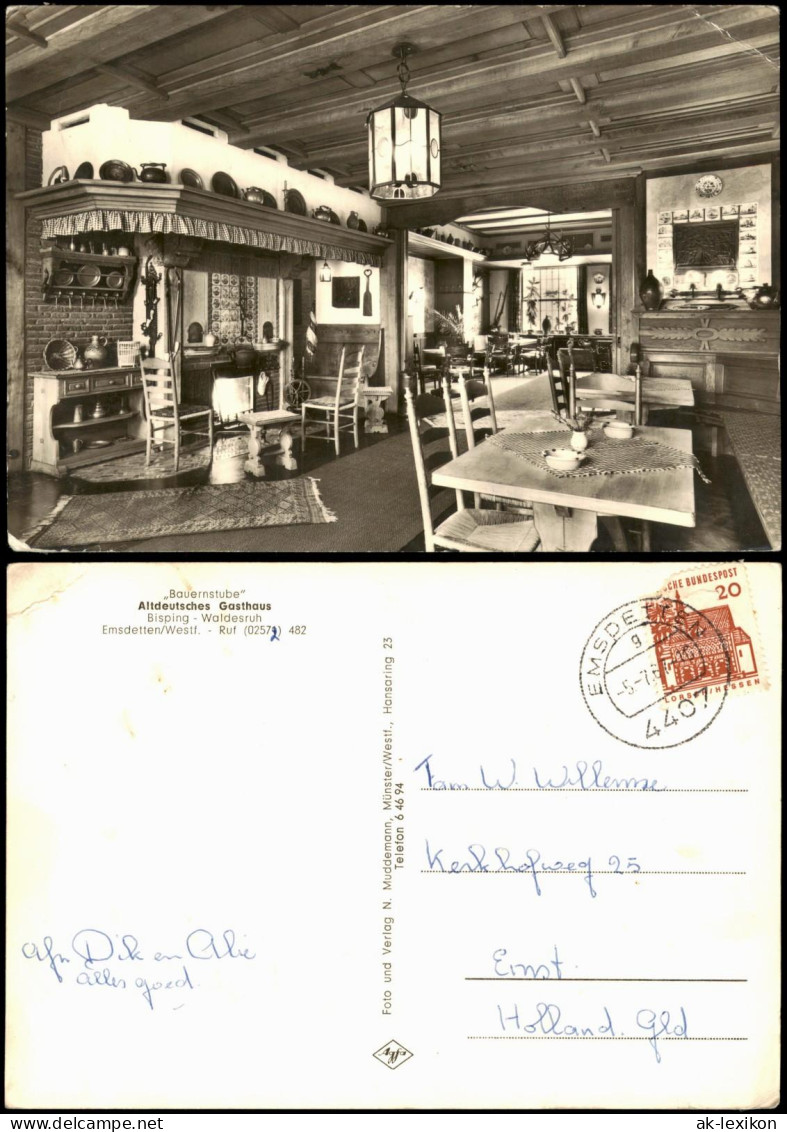 „Bauernstube"
Altdeutsches Gasthaus
Bisping - Waldesruh
Emsdetten/Westf. - Ruf (02572) 482
Foto und Verlag N. Muddemann, Münster/Westf., Hansaring 23
Telefon 6 46 94
Agfa
CHE BUNDESPOST
20
LORSCH/HESSEN
EMSDETTEN
g
4407
Fam W. Willemse
Kerkhofweg 25
Ernst.
Holland. Gld
Afz Dik en Alie
alles goed.
ak-lexikon.com